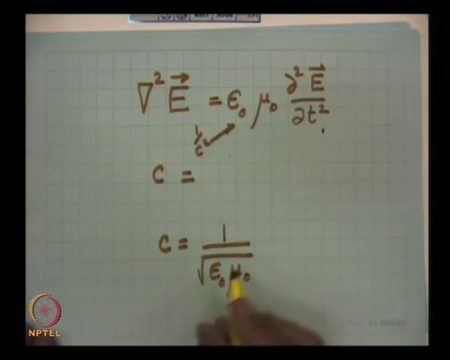 ∇² E⃗ = ε₀ μ₀ ∂² E⃗ / ∂t²
1/c²
C =
C = 1 / √ε₀ μ₀
NPTEL